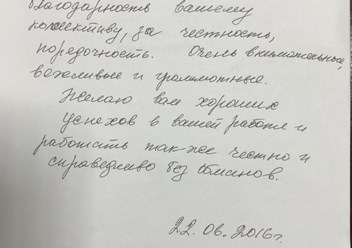 благодарность вашему
коллективу, за честность,
порядочность. Очень внимательные,
вежливые и грамотные.
Желаю вам хороших
успехов в вашей работе и
работать так же честно и
справедливо без обманов.
22.06.2016г.